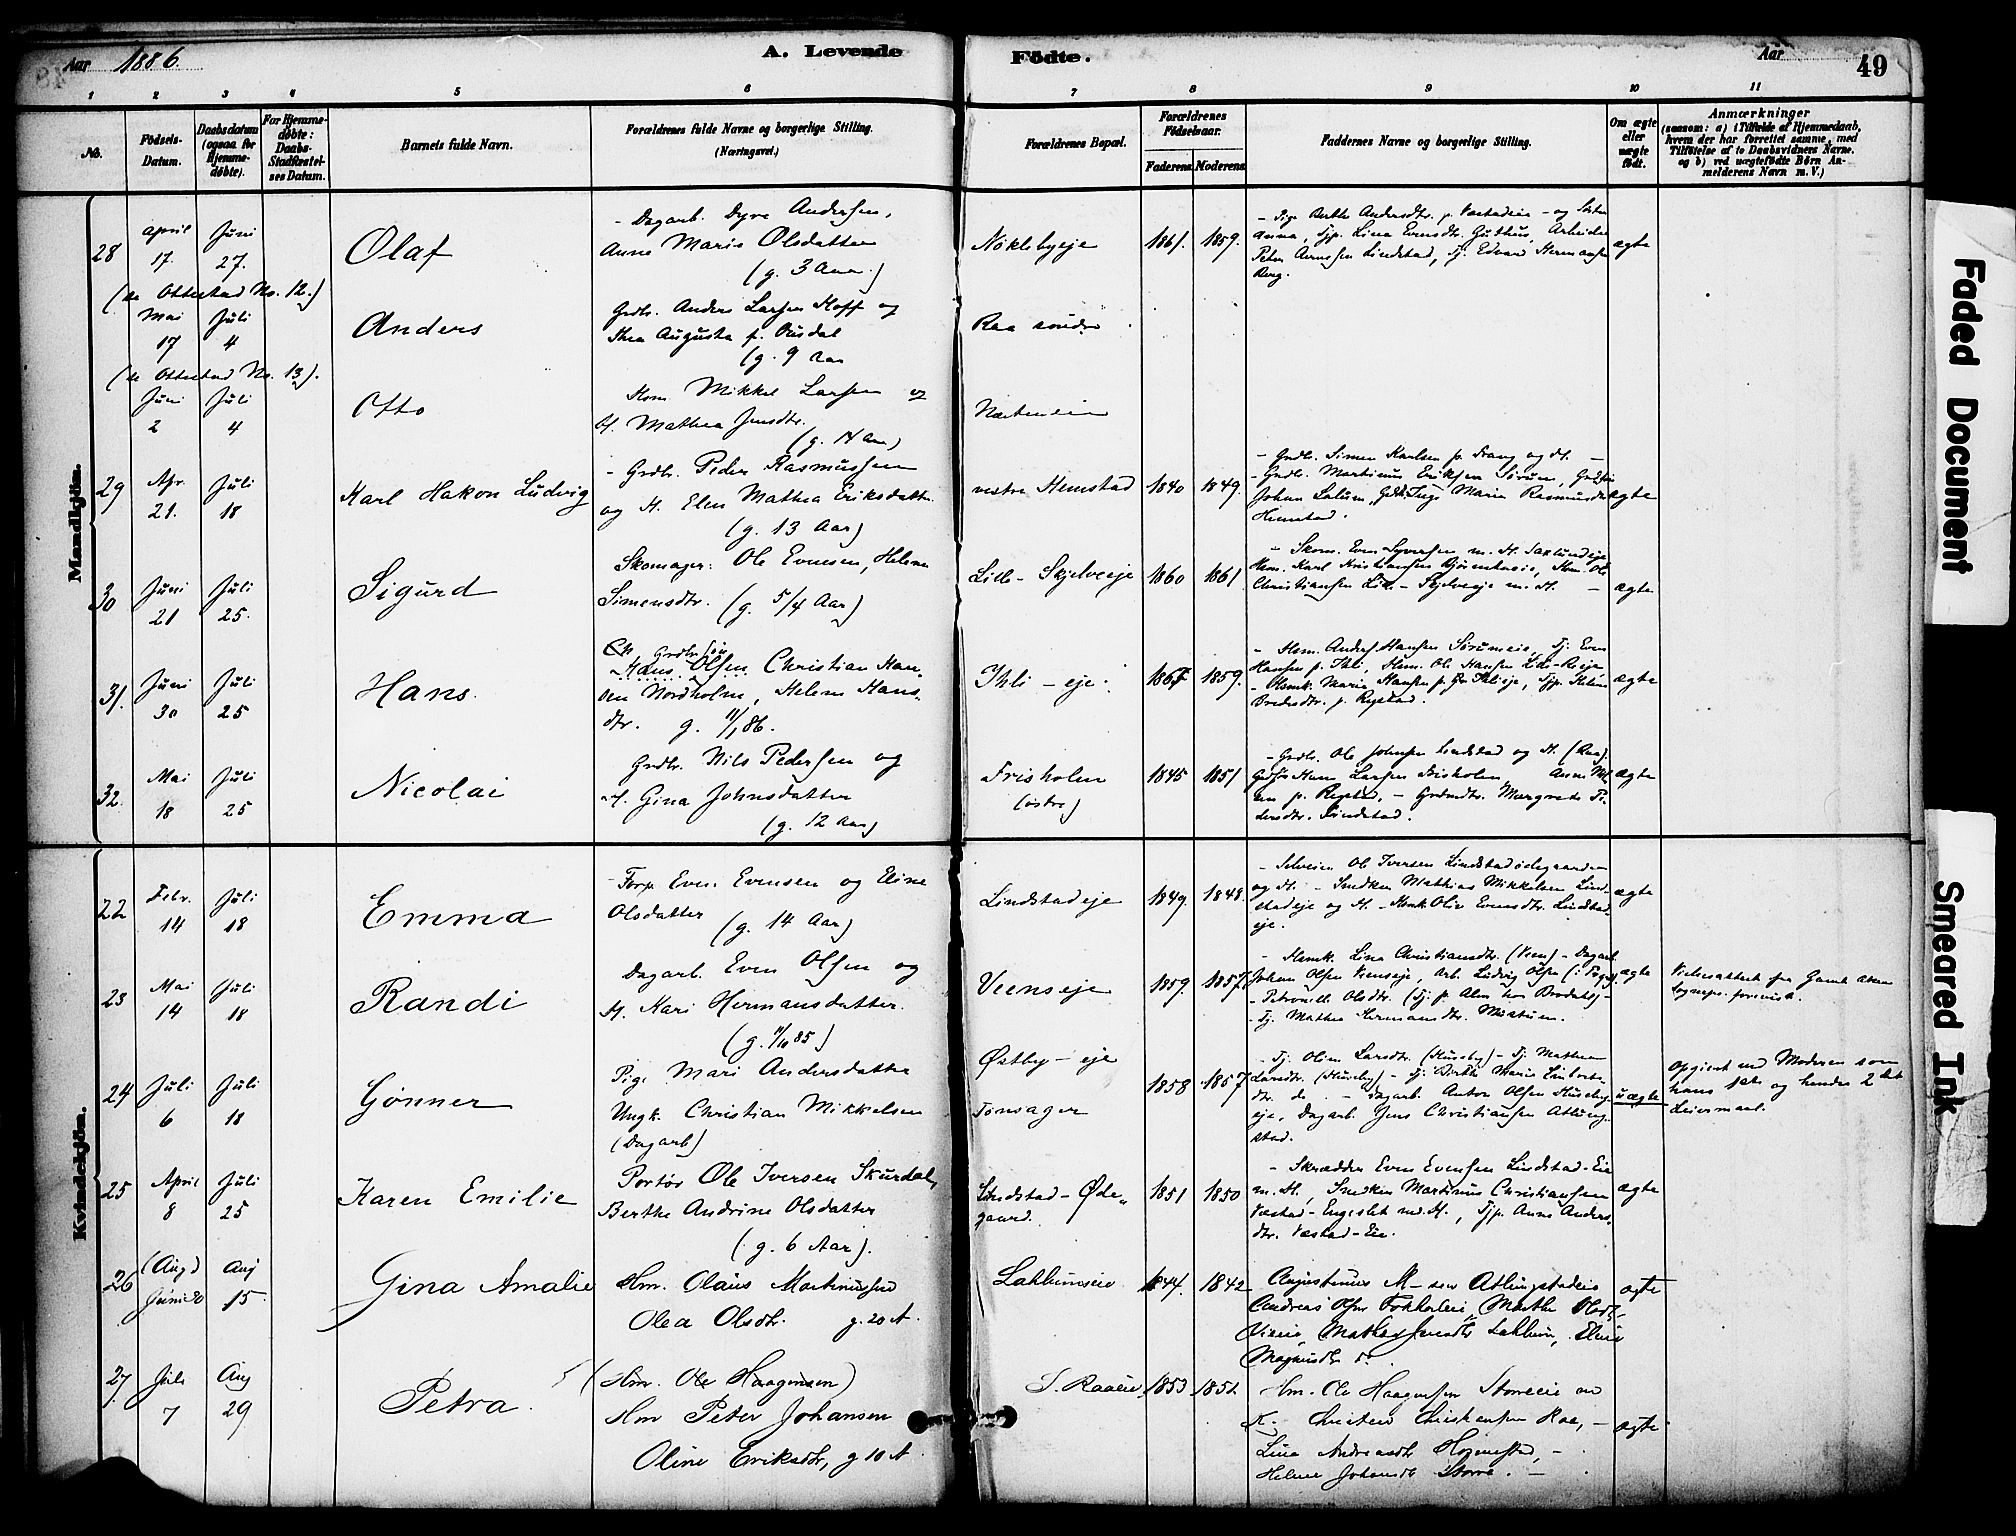 Aar 1886.
A. Levende
Födte.
Aar
49
1 2 3 4 5 6 7 8 9 10 11
No.
Födsels-
Datum.
Daabsdatum
(ogsaa for
Hjemme-
døbte).
For Hjemme-
døbte:
Daabs-
Stadfæstel-
ses Datum.
Barnets fulde Navn.
Forældrenes fulde Navne og borgerlige Stilling.
(Næringsvei.)
Forældrenes Bopæl.
Forældrenes
Födselsaar.
Faderens Moderens
Faddernes Navne og borgerlige Stilling.
Om ægte
eller
uægte
födt.
Anmærkninger
(saasom: a) i Tilfælde af Hjemmedaab,
hvem der har forrettet samme, med
Tilföielse af to Daabsvidners Navne,
og b) ved uægtefödte Börn An-
melderens Navn m. V.)
Mandkjön.
28
april
17.
Juni
27.
Olaf
- Dagarb. Dyre Andersen,
Anne Marie Olsdatter
(g. 3 Aar.)
Nöklebyeje
1861. 1859.
- Pige Berthe Andersdtr. p. Væstadeie - og Søster
Anna, Tjp. Lina Evensdtr. Guthus, Arbeider
Peter Arnesen Lindstad, Tj. Edvard Hermansen
Berg.
ægte
(se Ottestad No. 12.)
Mai
17
Juli
4
Anders
Grdbr. Anders Larsen Hoff og
Thea Augusta f. Dusdal
(g. 9 Aar
Raa søndre
(se Ottestad No. 13).
Juni
2
Juli
4
Otto
Hsm. Mikkel Larsen og
H. Mathea Jensdtr.
(g. 14 Aar)
29
Apr.
21.
Juli
18
Karl Hakon Ludvig
- Grdbr. Peder Rasmussen
og H. Elen Mathea Eriksdatter
(g. 13 Aar)
vestre Hemstad
1840 1849.
- Grdbr. Simen Karlsen p. Frang og H. -
- Grdbr. Martinus Eriksen Sørum, Grdsøn
Johan Lalum, Grdbr. Inge Marie Rasmusdtr
Hemstad.
ægte
30
Juni
21
Juli
25.
Sigurd
Skomager: Ole Evensen, Helene
Simensdtr. (g. 5/4 Aar)
Lille-Skjelveeje
1860 1861
- Skom. Even Syversen m. H. Saxlundeje
Hsm. Karl Kristiansen Bjørnhuseie, Hsm. Ole
Christiansen Lille-Skjelveeje m. H. -
ægte
31.
Juni
30
Juli
25
Hans.
Grdbr. Søn
Hans Olsen Christian Han-
sen Nordholm, Helene Hans-
dtr. g. 11/1 86.
Ihli-eje.
1867 1859.
- Hsm. Anders Hansen Sørumeie, Tj. Even
Hansen p. Ihli, Hsm. Ole Hansen Lille-Reeje
- Olsmk. Marie Hansen p. Ihlieje, Tjp. Helene
Bredesdtr. p. Rogstad.
ægte
32.
Mai
18
Juli
25
Nicolai
Grdbr. Nils Pedersen og
H. Gina Johnsdatter
(g. 12 Aar)
Frisholm
(østre)
1845 1851
- Grdbr. Ole Johnsen Lindstad og H. (Raa).
Grdsøn Hans Larsen Frisholm, Anne
p. Rogstad, - Grdmdtr. Margrete Pe-
dersdtr. Lindstad.
ægte
Kvindekjön.
22
Febr.
14
Juli
18
Emma
- Forp. Even Evensen og Eline
Olsdatter (g. 14 Aar)
Lindstadeje
1849. 1848.
- Selveier Ole Iversen Lindstadödegaarden
og H. - Snedker Mathias Mikkelsen Lind-
stadeje og H. - Hsmk. Olea Evensdtr. Lindstad-
eje.
ægte
23
Mai
14
Juli
18
Randi
Dagarb. Even Olsen og
H. Kari Hermansdatter.
(g. 11/10 85)
Veenseje
1859. 1857.
- Hsmk. Lina Christiansdtr. (Veen) - Dagarb.
Johan Olsen Veenseje, Arb. Ludvig Olsen
- Petronelle Olsdtr. (Tj. p. Alm hos Brodahl) -
- Tj. Mathea Hermansdtr. Mustuen.
ægte
Vielsesattest fra Gamle Akers
Sognepr. forevist.
24
Juli
6
Juli
18
Gönner
Pige Mari Andersdatter
Ungk. Christian Mikkelsen
(Dagarb)
Østby-eje
Tonsager
1858 1857
- Tj. Oline Larsdtr. (Huseby) - Tj. Mathea
Larsdtr. (Huseby) - Tj. Berthe Marie Embrets-
dtr. do. - Dagarb. Anton Olsen Huseby-
eje, Dagarb. Jens Christiansen Atlung-
stad.
uægte
Opgivet ved Moderen som
hans 1ste og hendes 2det
Leiermaal.
25
April
8
Juli
25
Karen Emilie
Portör Ole Iversen Skurdal,
Berthe Andrine Olsdatter
(g. 6 Aar).
Lindstad-Øde-
gaard.
1851 1850
- Skrædder Even Evensen Lindstad-Eie
m. H., Snedker Martinus Christiansen
Væstad-Engeslet md. H., Tjp. Anne Anders-
dtr. Væstad-Eie.
ægte
26
(Aug)
Juni 20
Aug
15
Gina Amalie
Hm. Olaus Martinusen
Olea Olsdtr. g. 20 A.
Lahlumseie
1844. 1842
Augustinus M-sen Atlungstadeie
Andreas Olsen Marthe Olsdtr
Mathea Jensdtr Lahlum,
Magnusdtr
ægte
27
Juli
7
Aug
29
Petra.
(Hm. Ole Haagensen)
Hm Peter Johansen
Oline Eriksdtr, g 10 A
S. Raaeie
1853 1851.
Hm. Ole Haagensen Storreeie m
K. - Christen Christiansen Raa, -
Lina Andreasdtr -
Helene Johansdtr Storre. -
ægte
Faded Document
Smeared Ink